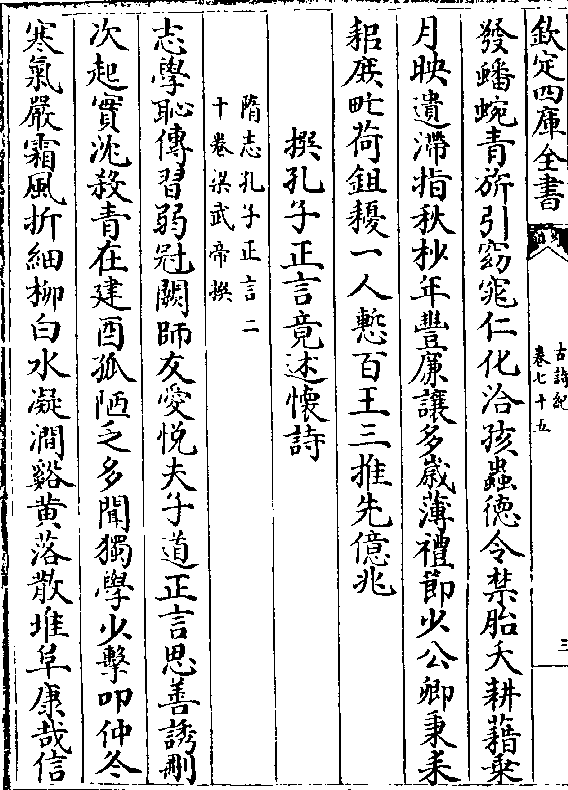 欽定四庫全書
古詩紀
卷七十五
三
發蟠蜿青斾引窈窕仁化洽孩蟲徳令禁胎夭耕藉乗
月映遺滯指秋杪年豐廉讓多嵗薄禮節少公卿秉耒
耜庶甿荷鉏耰一人慙百王三推先億兆
撰孔子正言竟述懷詩
隋志孔子正言二
十卷梁武帝撰
志學恥傳習弱冠闕師友愛悦夫子道正言思善誘刪
次起實沈殺青在建酉孤陋乏多聞獨學少擊叩仲冬
寒氣嚴霜風折細柳白水凝澗谿黄落散堆阜康哉信